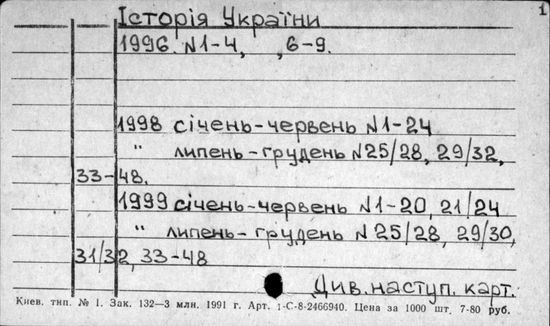 1
Історія України
1996. N1-4, ,6-9.
1998 січень-червень N1-24
" липень-грудень N25/28, 29/32,
33-48.
1999 січень-червень N1-20, 21/24
" липень-грудень N25/28, 29/30,
31/32, 33-48
Див. наступ. карт.
Киев. тип. № 1. Зак. 132—3 млн. 1991 г. Арт. 1-С-8-2466940. Цена за 1000 шт. 7-80 руб.